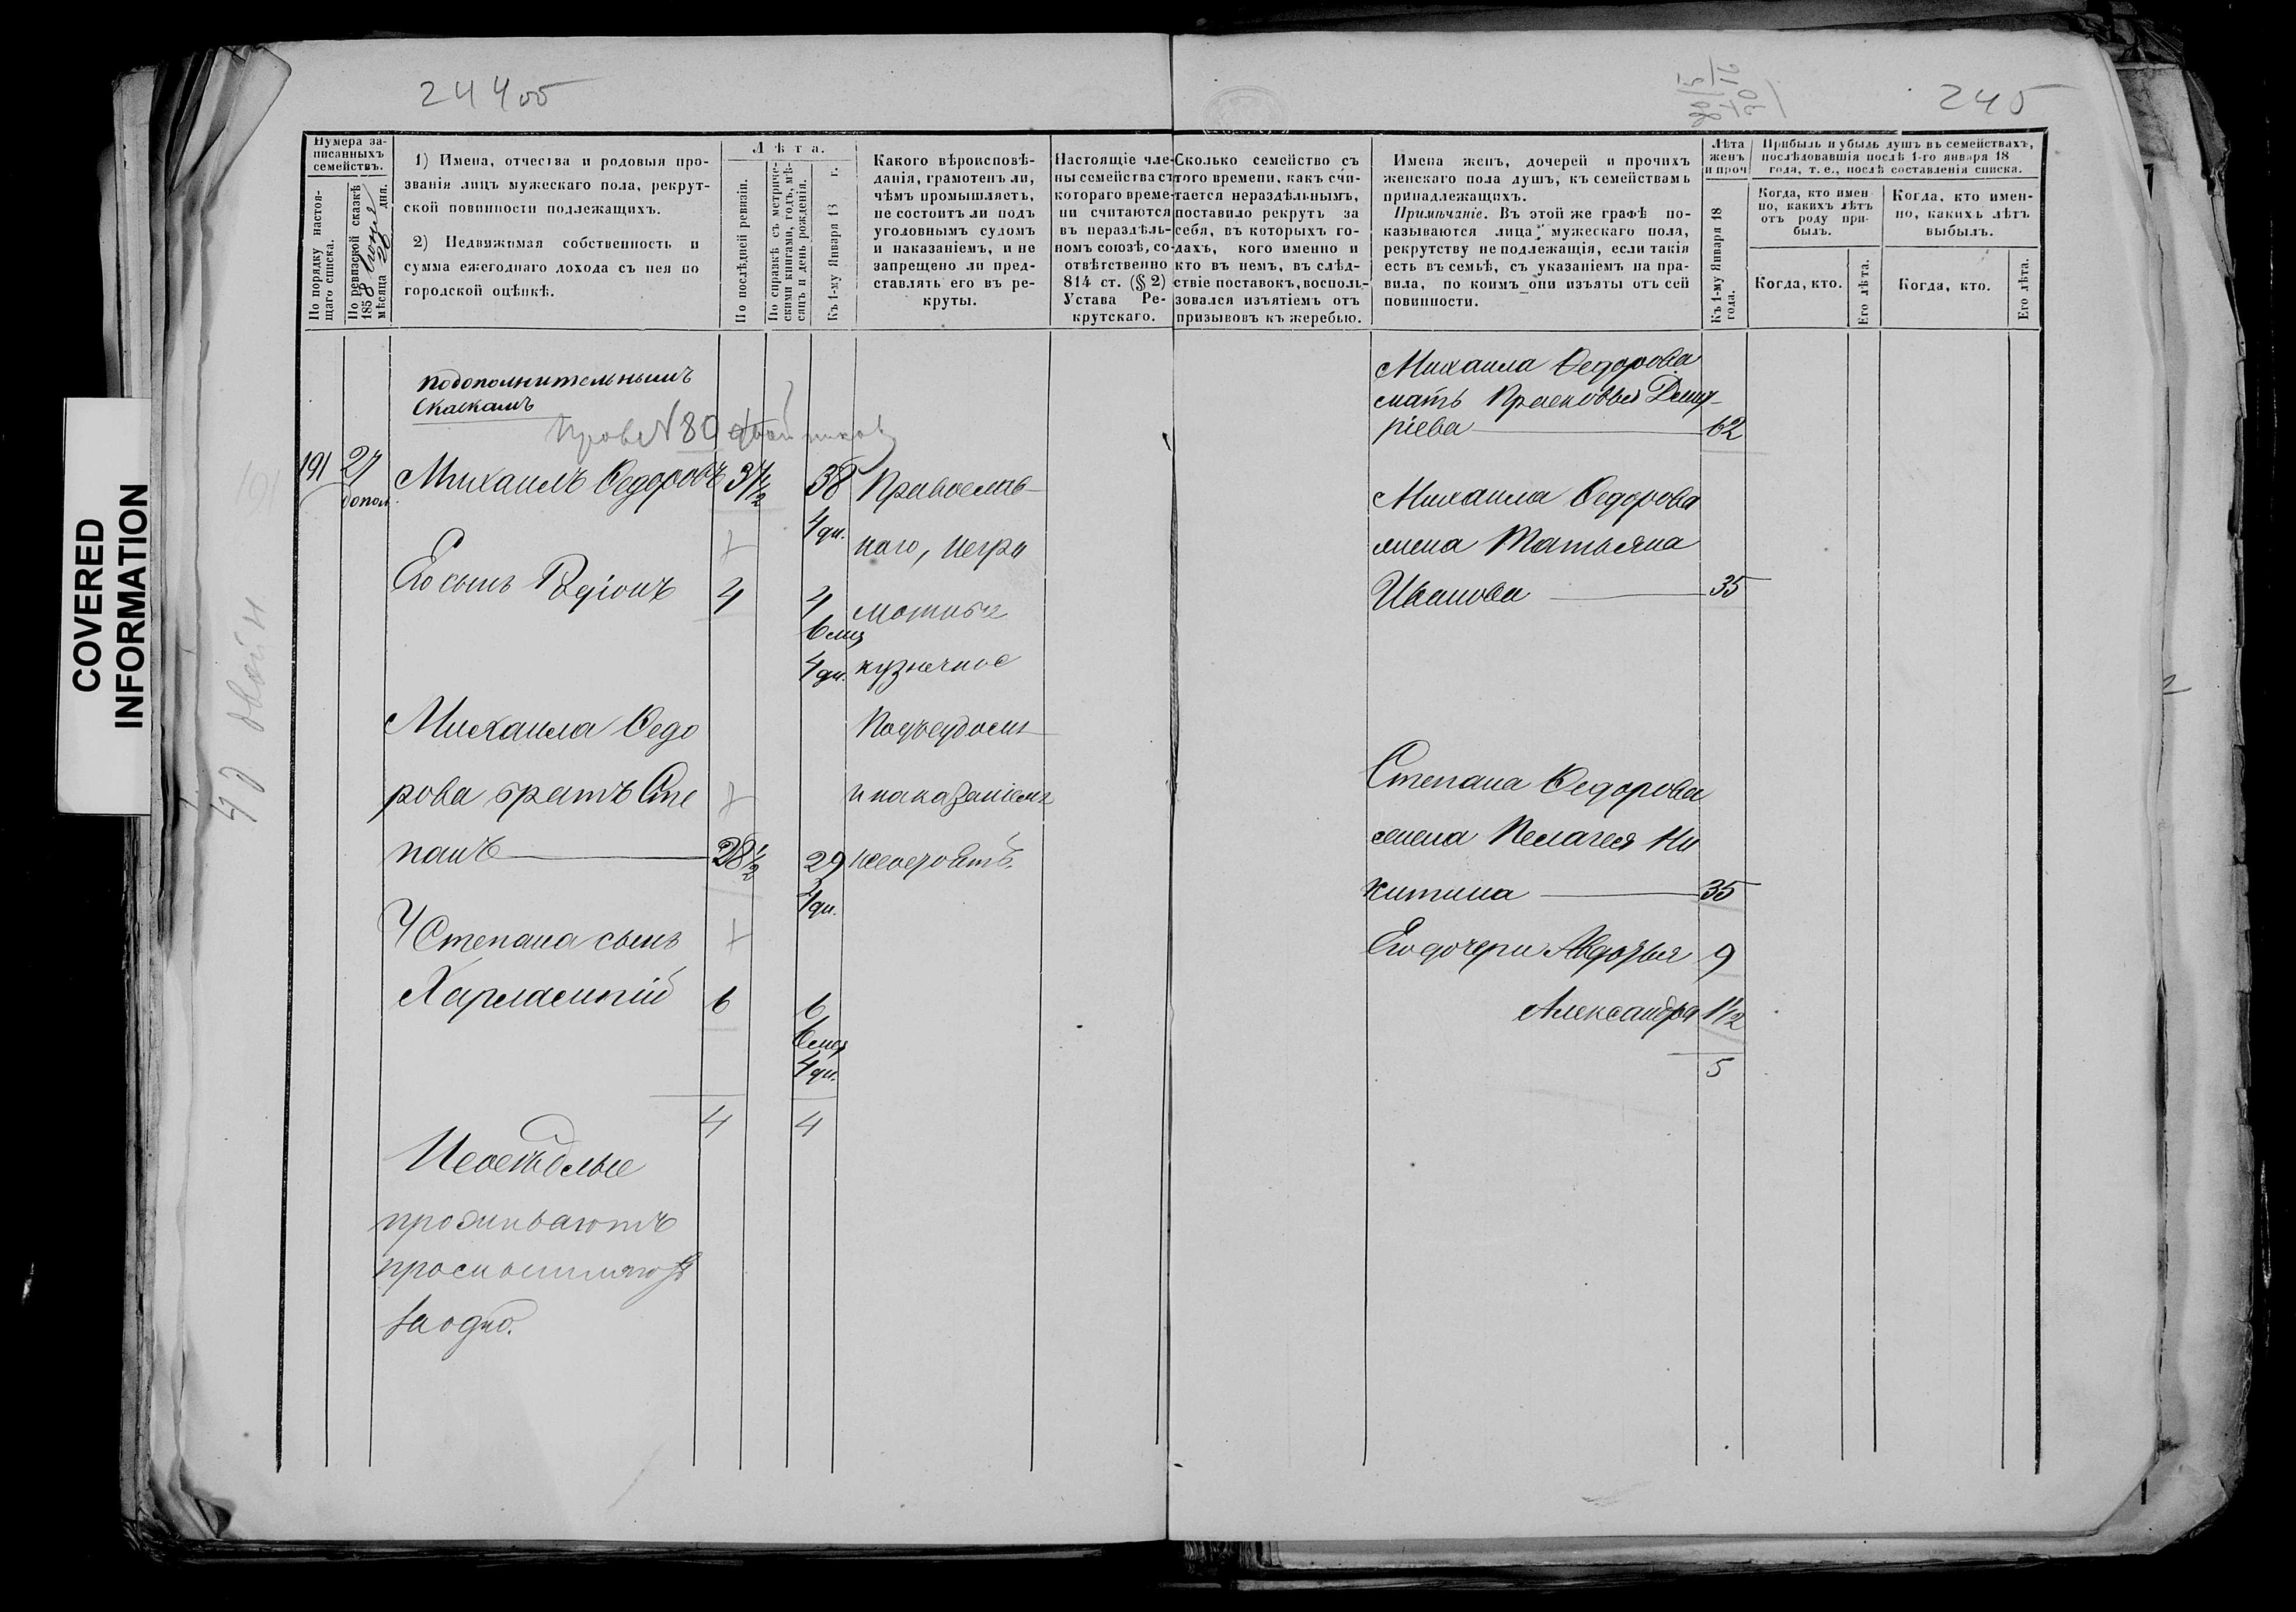 244 об
245
COVERED
INFORMATION
Нумера за-
писанныхъ
семействъ.
По порядку настоя-
щаго списка.
По ревизской сказкѣ
1858 Июня
мѣсяца 26 дня.
1) Имена, отчества и родовыя про-
званія лицъ мужескаго пола, рекрут-
ской повинности подлежащихъ.
2) Недвижимая собственность и
сумма ежегоднаго дохода съ нея по
городской оцѣнкѣ.
Лѣта.
По послѣдней ревизіи.
По справкѣ съ метриче-
скими книгами, годъ, мѣ-
сяцъ и день рожденія.
Къ 1-му Января 18 г.
Какого вѣроисповѣ-
данія, грамотенъ ли,
чѣмъ промышляетъ,
не состоитъ ли подъ
уголовнымъ судомъ
и наказаніемъ, и не
запрещено ли пред-
ставлять его въ ре-
круты.
Настоящіе чле-
ны семейства съ
котораго време-
ни считаются
въ нераздѣль-
номъ союзѣ, со-
отвѣтственно
814 ст. (§ 2)
Устава Ре-
крутскаго.
Сколько семейство съ
того времени, какъ счи-
тается нераздѣльнымъ,
поставило рекрутъ за
себя, въ которыхъ го-
дахъ, кого именно и
кто въ немъ, въ слѣд-
ствіе поставокъ, восполь-
зовался изъятіемъ отъ
призывовъ къ жеребью.
Имена женъ, дочерей и прочихъ
женскаго пола душъ, къ семействамъ
принадлежащихъ.
Примѣчаніе. Въ этой же графѣ по-
казываются лица мужескаго пола,
рекрутству не подлежащія, если такія
есть въ семьѣ, съ указаніемъ на пра-
вила, по коимъ они изъяты отъ сей
повинности.
Лѣта
женъ
и проч
Къ 1-му Января 18
года.
Прибыль и убыль душъ въ семействахъ,
послѣдовавшія послѣ 1-го января 18
года, т. е., послѣ составленія списка.
Когда, кто имен-
но, какихъ лѣтъ
отъ роду при-
былъ.
Когда, кто имен-
но, какихъ лѣтъ
выбылъ.
Когда, кто.
Его лѣта.
Когда, кто.
Его лѣта.
подополнительнымъ
Скаскамъ
Пров № 80
191 27 Михаилъ Ѳедоровъ 37 1/2 38 Православ-
допол. 4 дн. наго, негра
Его сынъ Родіонъ 4 4 мотные
6 мц
4 дн. кузнечное
Михаила Ѳедо Подъсудомъ
рова братъ Сте инаказаніемъ
панъ 28 1/2 29 несостоятъ.
4 дн.
У Степана сынъ
Харлампій 6 6
6 мц
4 дн.
4 4
Неосѣдлые
проживаютъ
за одно.
Михаила Ѳедорова
мать Прасковья Дмит-
ріева 62
Михаила Ѳедорова
жена Татьяна
Иванова 35
Степана Ѳедорова
жена Пелагея Ни
китина 35
Его дочери Авдотья 9
Александра 1 1/2
5